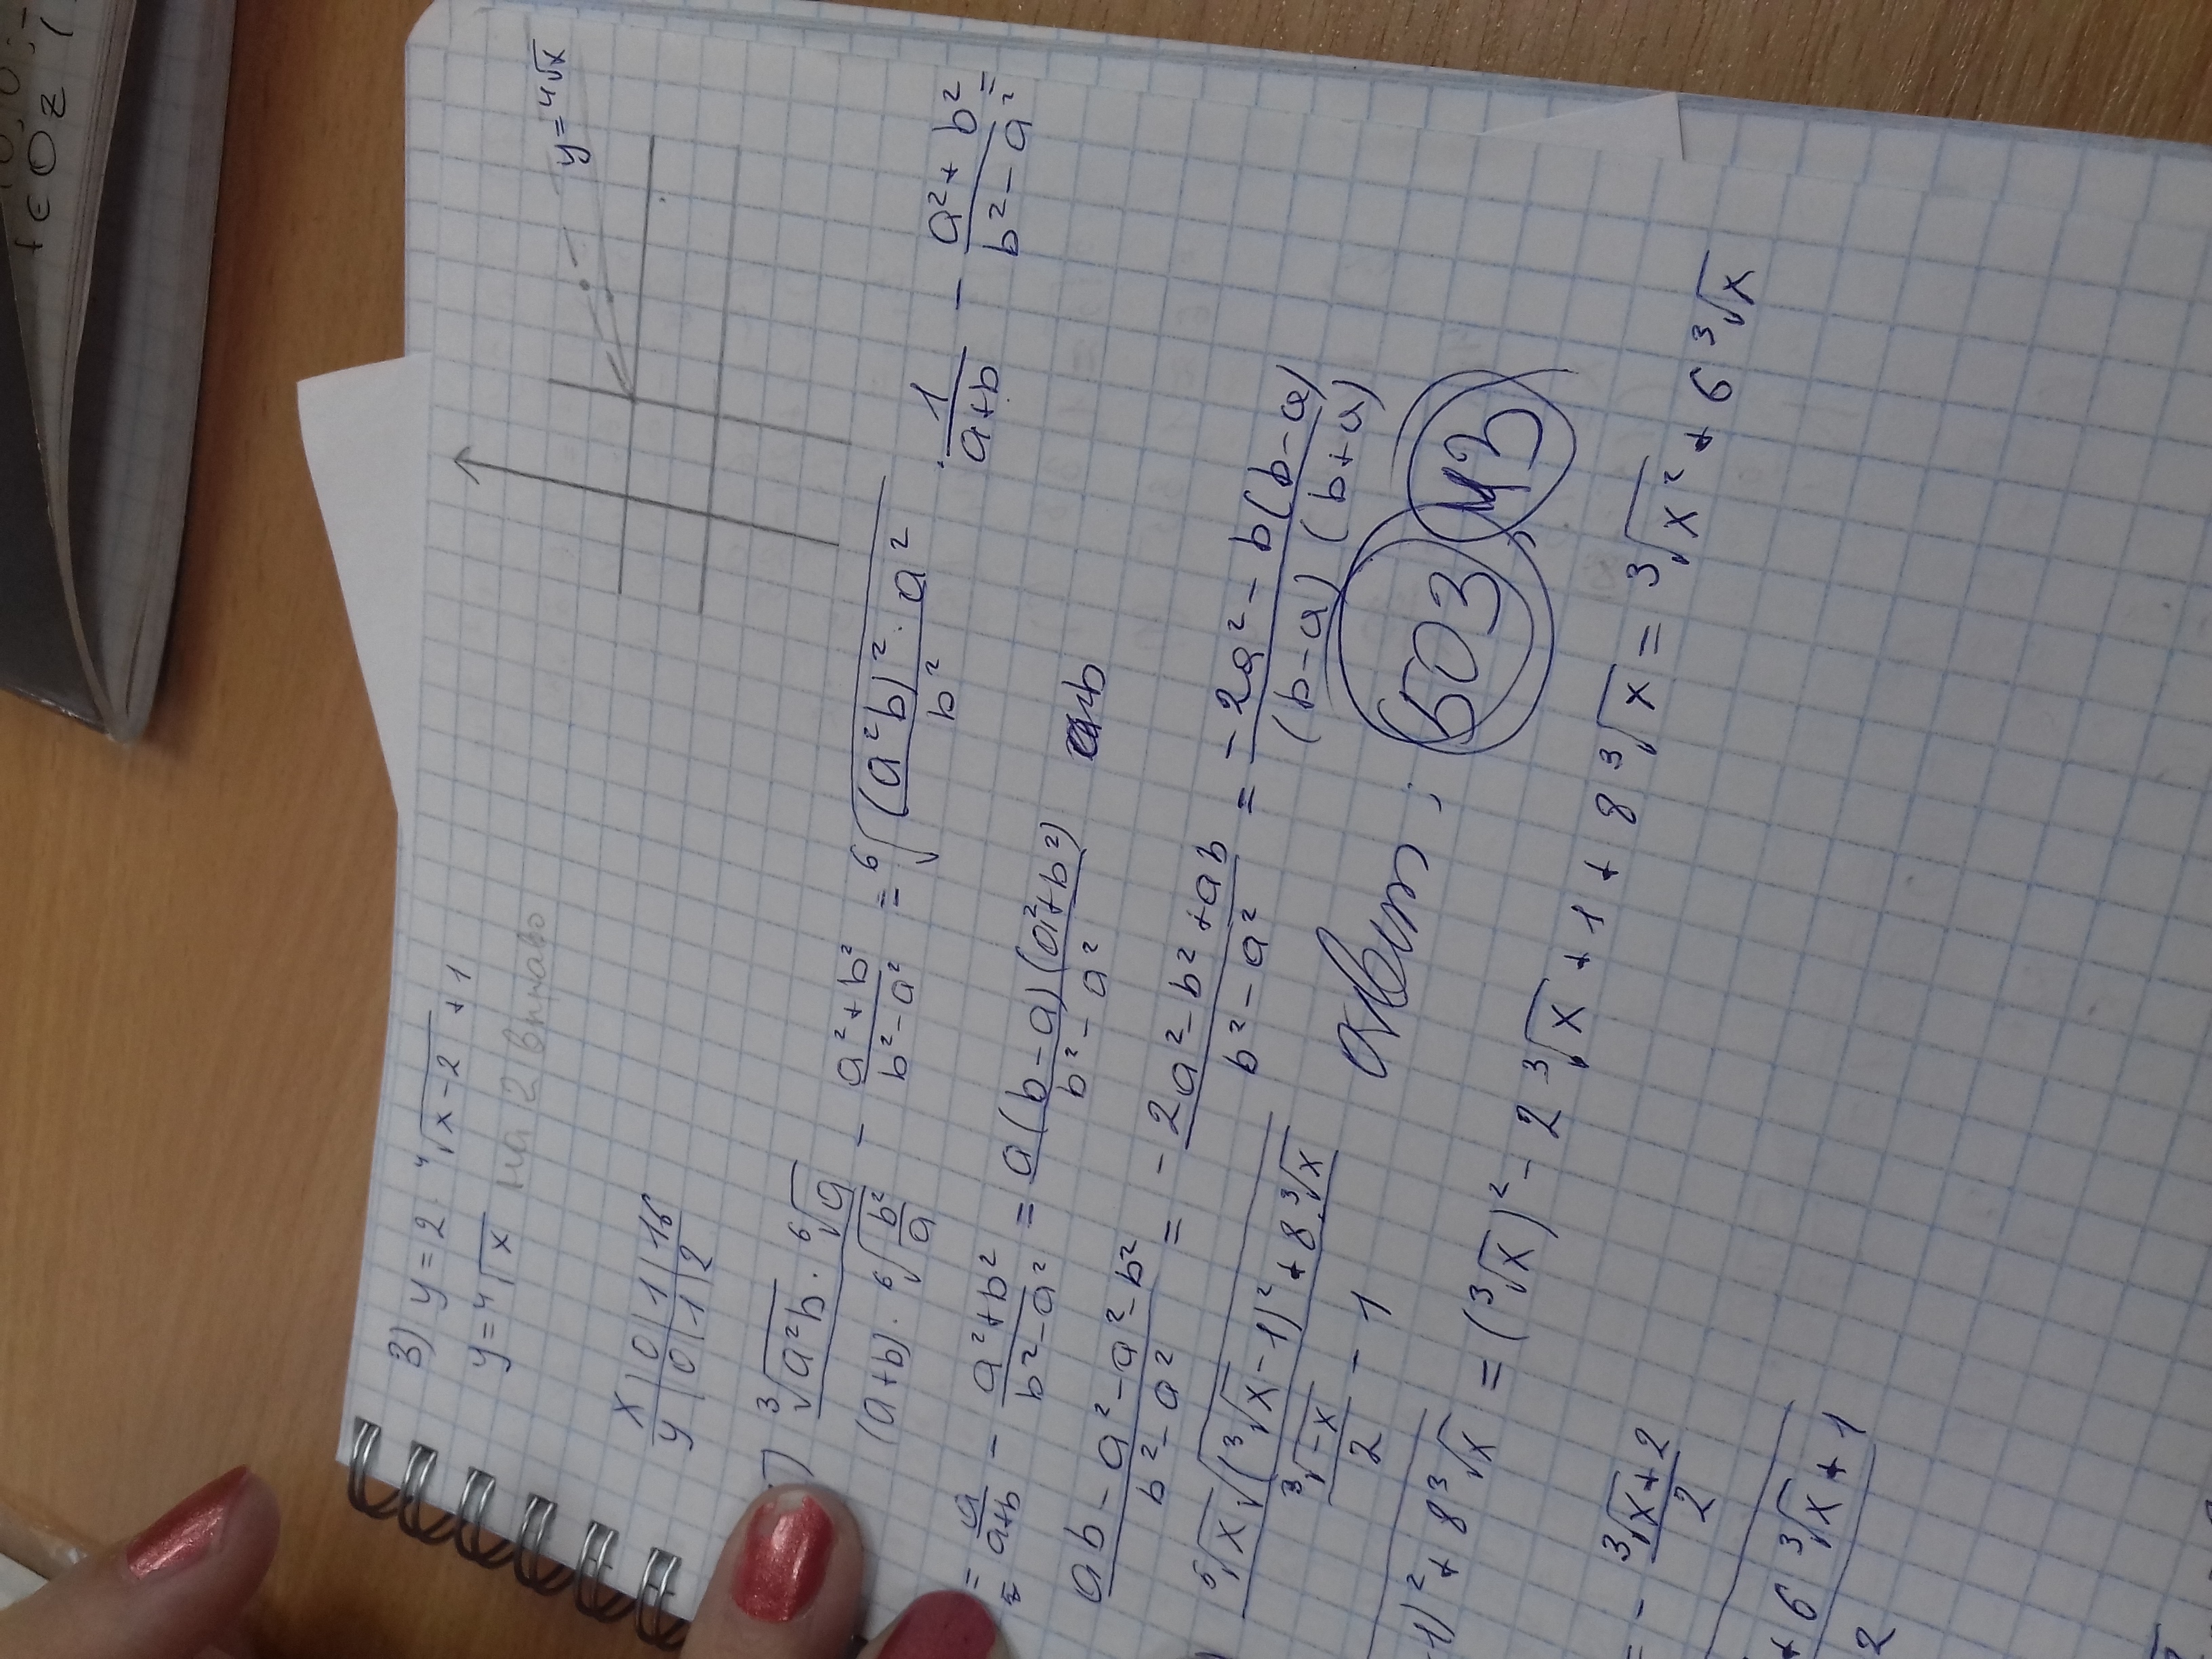 3) y = 2 ⁴√(x-2) + 1
y = ⁴√x на 2 вправо
y = ⁴√x
x | 0 | 1 | 16
y | 0 | 1 | 2
) (³√(a²b) · ⁶√a) / ((a+b) · ⁶√(b²/a)) - (a²+b²)/(b²-a²) = ⁶√((a²b)² · a² / b²) · 1/(a+b) - (a²+b²)/(b²-a²) =
= a/(a+b) - (a²+b²)/(b²-a²) = a(b-a)(a²+b²)/(b²-a²)
(ab-a²-a²-b²)/(b²-a²) = - (2a²-b²+ab)/(b²-a²) = - (2a²-b(b-a))/((b-a)(b+a))
⁶√x √((³√x-1)² + 8·³√x) / (³√-x / 2 - 1)
Ответ: Б03 ИВ
1)² + 8 ³√x = (³√x)² - 2 ³√x + 1 + 8 ³√x = ³√x² + 6 ³√x
= - (³√x+2)/2
+ 6 ³√x + 1
2